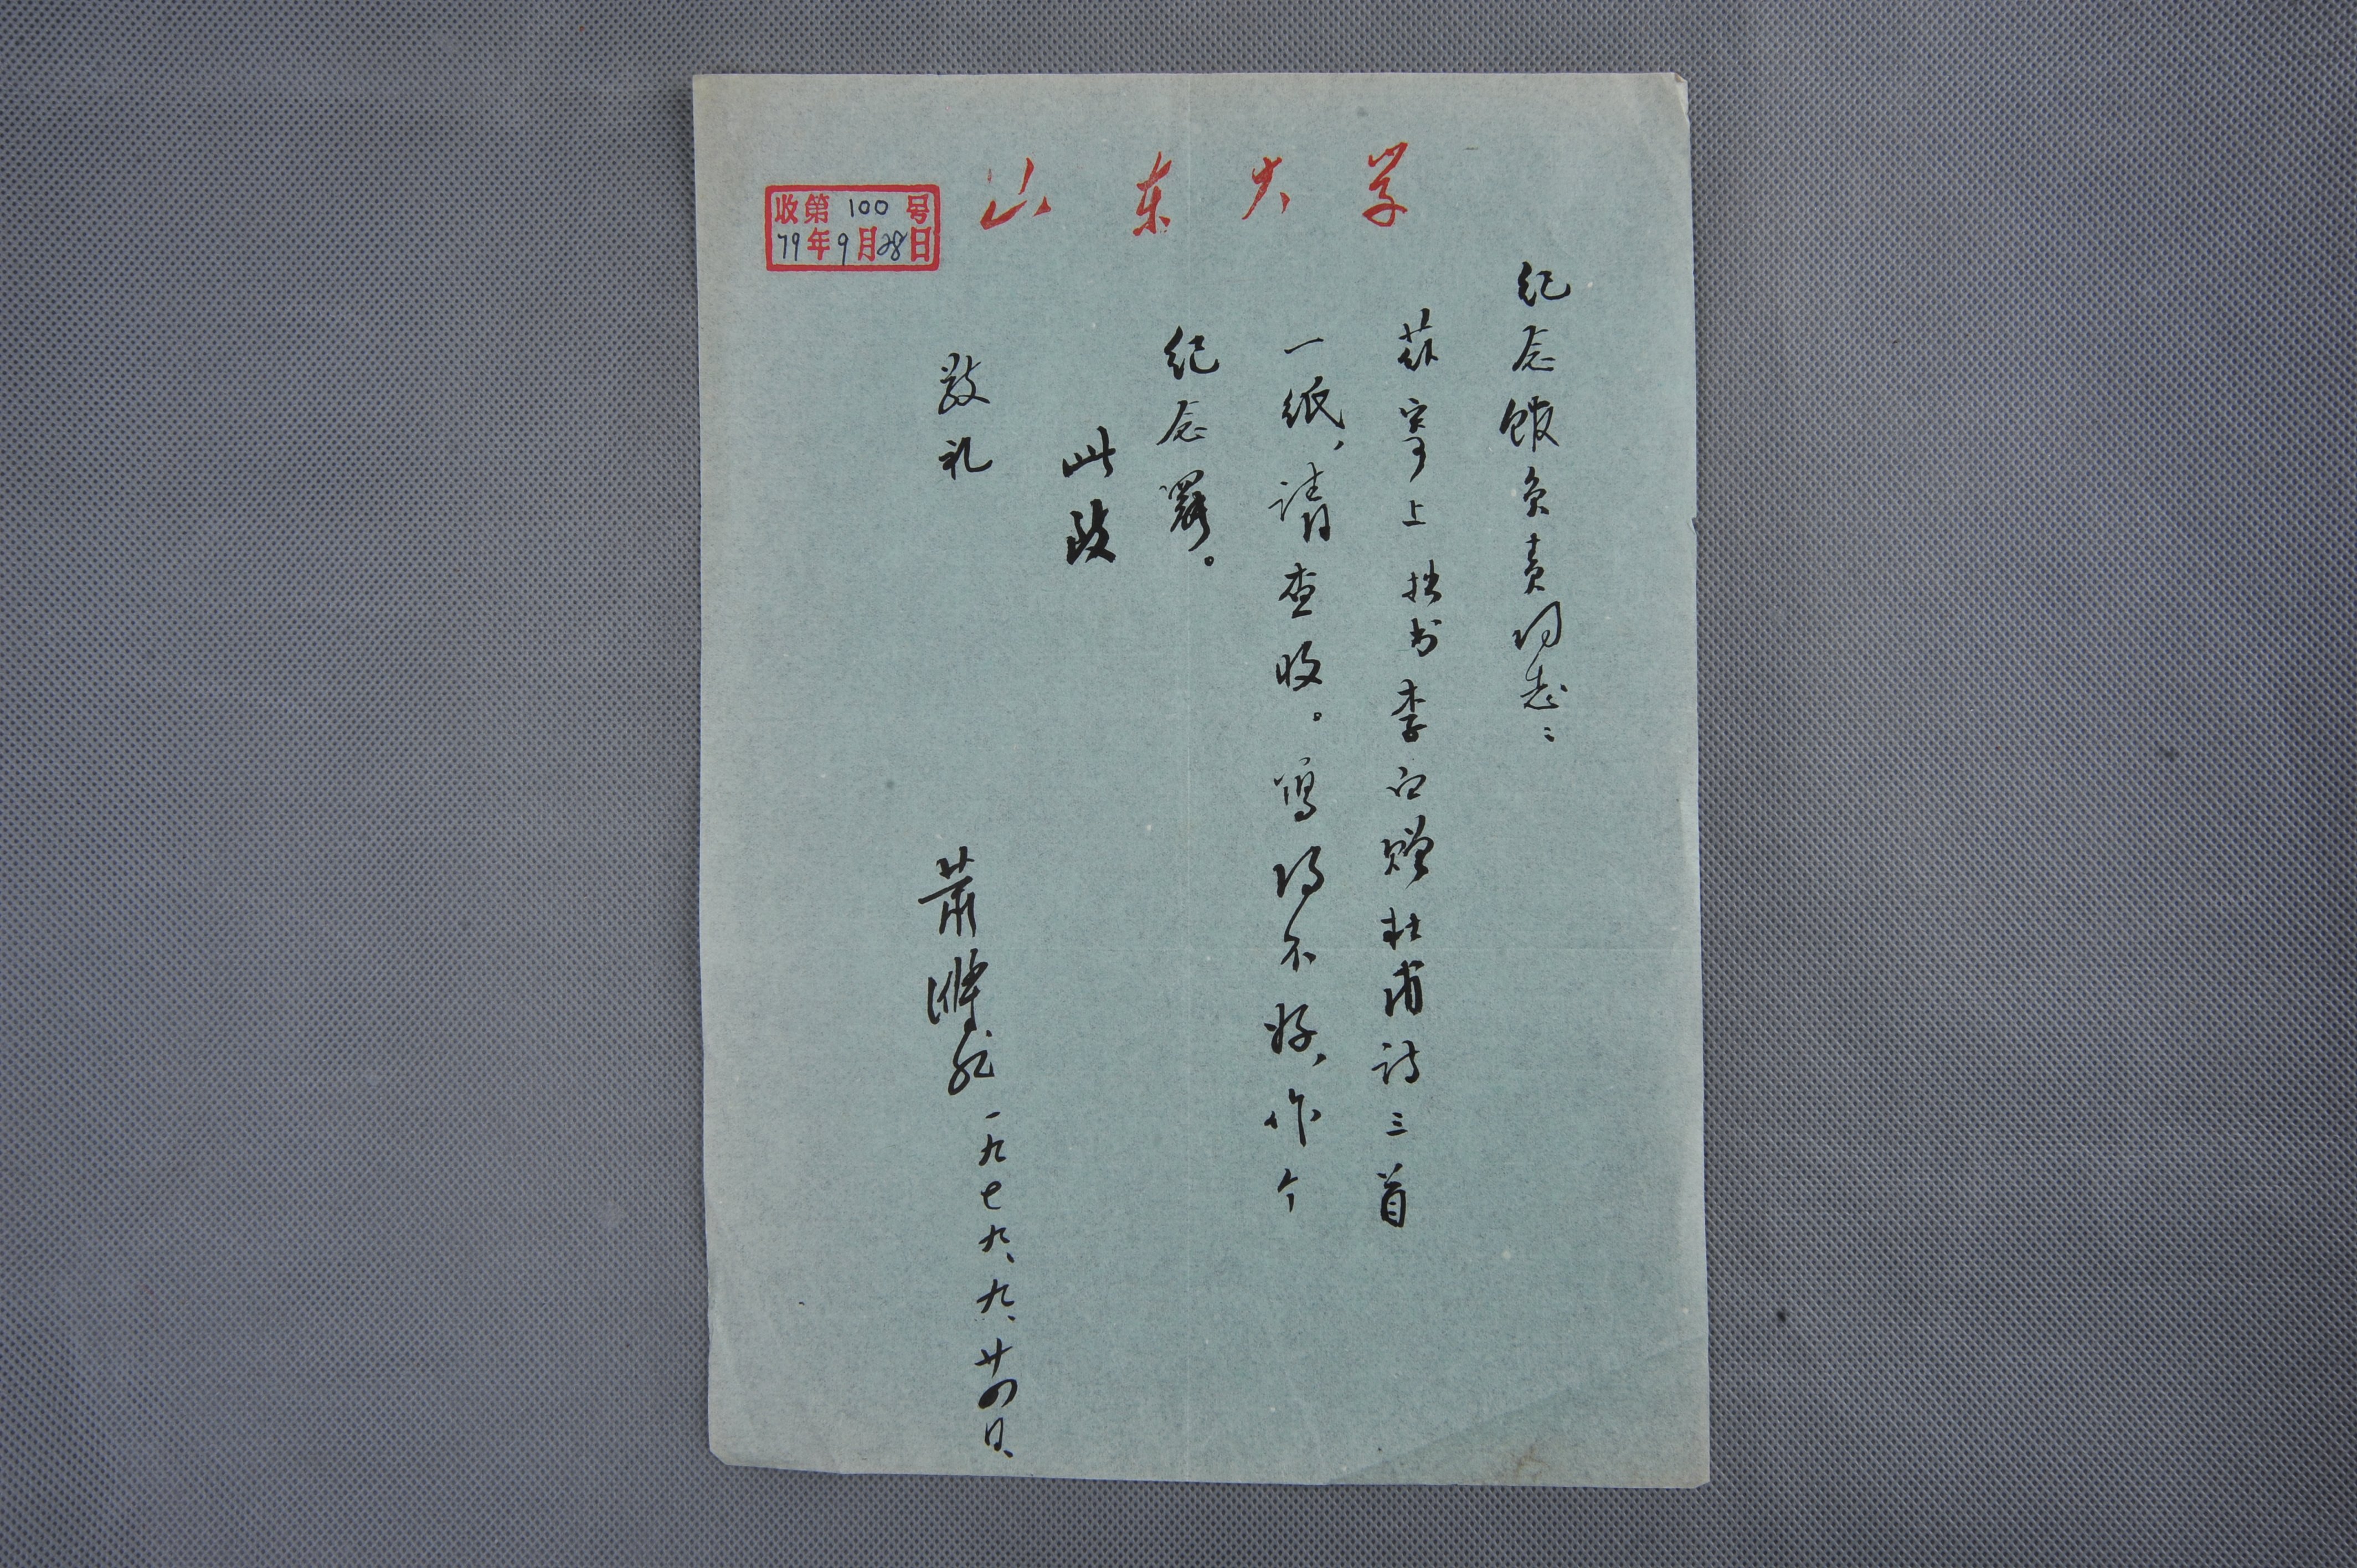 山东大学
收第100号
79年9月28日
纪念馆负责同志：
兹寄上拙书李白赠杜甫诗三首
一纸，请查收。写得不好，作个
纪念罢。
此致
敬礼
萧滌非 一九七九、九、廿四日、